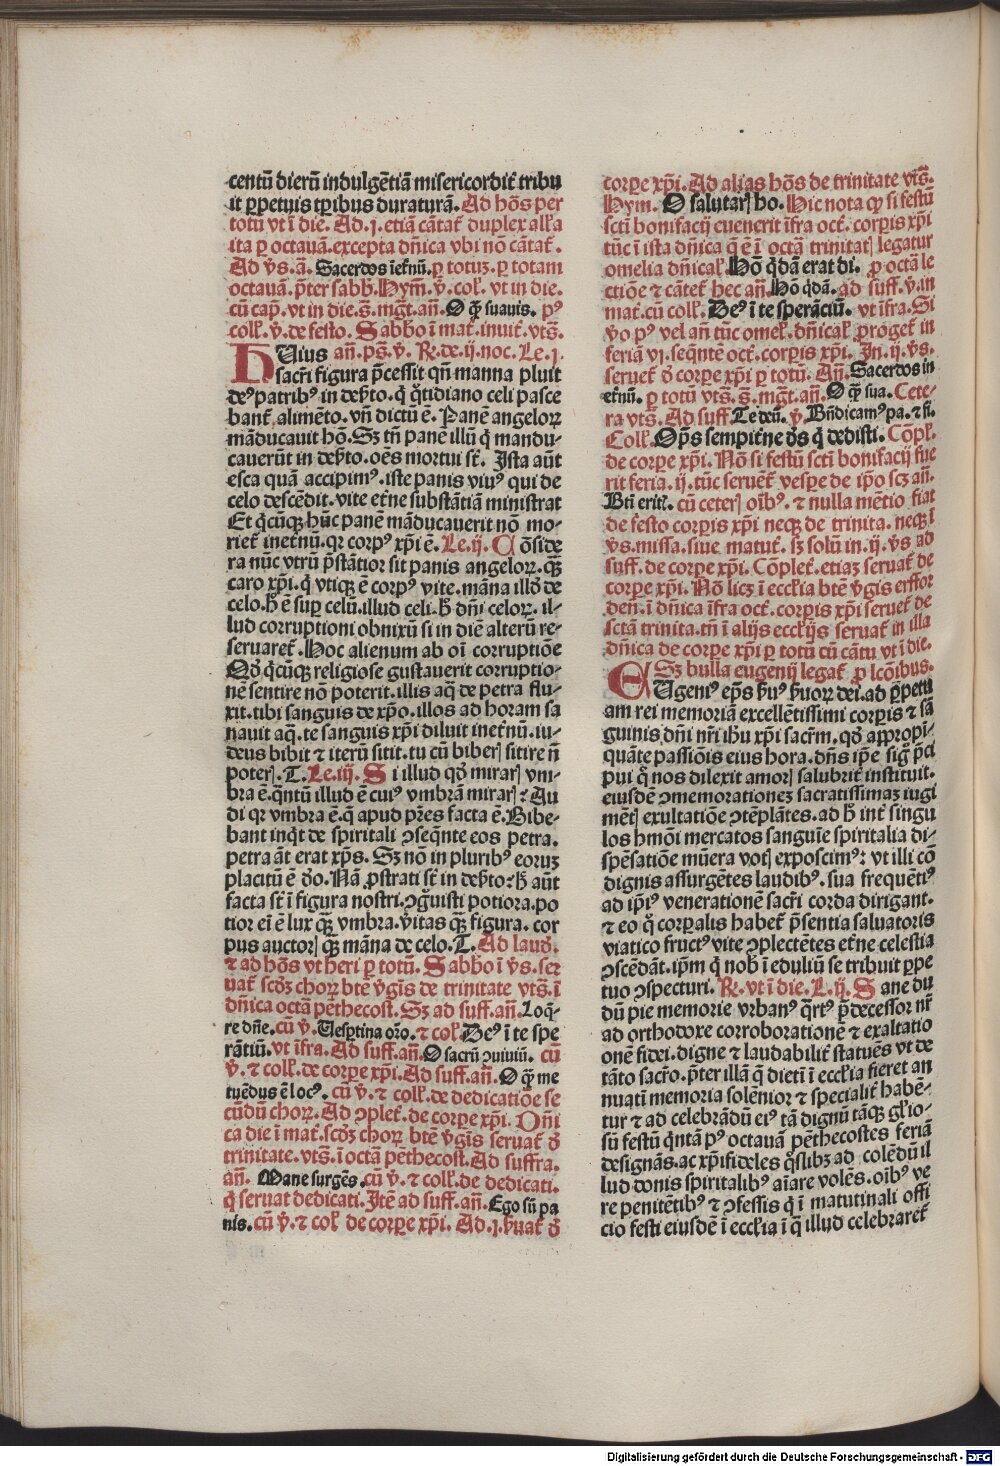 centū dierū indulgētiā misericordit̉ tribu
it ꝑpetuis tꝑibus duraturā. Ad hōs per
totū vt ī die. Ad .j. etiā cātat̉ duplex all̉a
ita ꝑ octauā. excepta dn̄ica vbi nō cātat̉.
Ad vs̄. ā. Sacerdos īet̉nū. ꝑ totuꝫ. ꝑ totam
octauam. p̄ter sabb. Hym̄. v̄. col̉. vt in die.
cū cap̄. vt in die. s̄. mḡt. an̄. O q̄ꝫ suauis. pꝰ
coll̉. v̄. de festo. Sabb̄o ī mat̉. inuit̉. vts̄.
HVius an̄. ps̄. v̄. R̄. de .ij. noc. Le .j.
sacr̄i figura p̄cessit qn̄ manna pluit
deꝰ patribꝰ in deb̄to. q̄ q̄tidiano celi pasce
bant̉ alimēto. vn̄ dictū ē. Panē angeloꝝ
māducauit hō. Sꝫ tn̄ panē illū q̄ mandu⸗
cauerūt in deb̄to. oēs mortui st̄. Ista aūt
esca quā accipimꝰ. iste panis viuꝰ qui de
celo descēdit. vite et̉ne substātiā ministrat
Et q̄cūqꝫ hūc panē māducauerit nō mo⸗
riet̉ inet̉nū. qr corpꝰ xp̄i ē. Le .ij. Cōside
ra nūc vtrū p̄stātior sit panis angeloꝝ. q̄ꝫ
caro xp̄i. q̄ vtiqꝫ ē corpꝰ vite. māna illd̄ de
celo. h̄ ē suꝑ celū. illud celi. h̄ dn̄i celoꝝ. il⸗
lud corruptioni obnixū si in diē alterū re⸗
seruaret̉. Hoc alienum ab oī corruptiōe
Qd̄ q̄cūqꝫ religiose gustauerit corruptio⸗
nē sentire nō poterit. illis aq̄ de petra flu⸗
xit. tibi sanguis de xp̄o. illos ad horam sa
nauit aq̄. te sanguis xp̄i diluit inet̉nū. iu⸗
deus bibit ⁊ iterū sitit. tu cū biber̄ sitire n̄
poter̄. T. Le .iij. Si illud qd̄ mirar̄ vm⸗
bra ē. q̄ntū illud ē cuiꝰ vmbrā mirar̄ ⁊ Au
di qr vmbra ē. q̄ apud pr̄es facta ē. Bibe⸗
bant inq̄t de spiritali ꝯseq̄nte eos petra.
petra āt erat xp̄s. Sꝫ nō in pluribꝰ eoruꝫ
placitū ē dō. Nā ꝓstrati st̄ in deb̄to. h̄ aūt
facta st̄ ī figura nostri. ꝯḡuisti potiora. po
tior ei̇̄ ē lux q̄ꝫ vmbra. v̄itas q̄ꝫ figura. cor
pus auctor̄ q̄ꝫ māna de celo. T. Ad laud̄.
⁊ ad hōs vt heri ꝑ totū. Sabb̄o ī vs̄. ser
uat̉ scd̄ꝫ choꝝ btē v̄gīs de trinitate vts̄. ī
dn̄ica octā pēthecost̄. Sꝫ ad suff. an̄. Loq̄⸗
re dn̄e. cū v̄. Vesp̱tina or̄o. ⁊ col̉. Deꝰ ī te spe
rātiū. vt īfra. Ad suff. an̄. O sacrū ꝯuiuiū. cū
v̄. ⁊ coll̉. de corpe xp̄i. Ad suff. an̄. O q̄ꝫ me
tuēdus ē locꝰ. cū v̄. ⁊ coll̉. de dedicatiōe se
cūdū choꝝ. Ad ꝯplet̉. de corpe xp̄i. Dn̄i
ca die ī mat̉. scd̄ꝫ choꝝ btē v̄gīs seruat̉ d̄
trinitate. vts̄. ī octā pēthecost̄. Ad suffra.
an̄. Mane surgēs. cū v̄. ⁊ coll̉. de dedicati.
q̄ seruat dedicati. Itē ad suff. an̄. Ego sū pa
nis. cū v̄. ⁊ col̉ de corpe xp̄i. Ad .j. s̄uat̉ d̄
corpe xp̄i. Ad alias hōs de trinitate vts̄.
Hym. O salutar̄ ho. Hic nota qꝫ si festū
scti bonifacij euenerit īfra oct̉. corpis xp̄i
tūc ī ista dn̄ica q̄ ē ī octā trinitat̄ legatur
omelia dn̄ical̉. Hō q̄dā erat di. ꝑ octā le
ctiōe ⁊ cātet̉ hec an̄. Hō q̄dā. ad suff. v̄. in
mat̉. cū coll̉. Deꝰ ī te sperāciū. vt īfra. Si
v̄o pꝰ vel an̄ tūc omel̉. dn̄ical̉ ꝓroget̉ in
feriā vj. seq̄ntē oct̉. corpis xp̄i. In .ij. vs̄.
seruet̉ d̄ corpe xp̄i ꝑ totū. An̄. Sacerdos in
et̉nū. ꝑ totū vts̄. s̄. mḡt. an̄. O q̄ꝫ sua. Cete⸗
ra vts̄. Ad suff. Te deū. v̄. Bn̄dicamꝰ pa. ⁊ fi.
Coll̉. Op̄s sempit̉ne d̄s q̄ dedisti. Cōpl̉.
de corpe xp̄i. Nō si festū scti bonifacij fue
rit feria .ij. tūc seruet̉ vespe de ip̄o scꝫ an̄.
Btī erit̉. cū ceter̄ oībꝰ. ⁊ nulla mētio fiat
de festo corpis xp̄i neqꝫ de trinita. neqꝫ ī
vs̄. missa. siue matut̉. sꝫ solū in .ij. vs̄ ad
suff. de corpe xp̄i. Cōplet̉. etiaꝫ seruat̉ de
corpe xp̄i. Nō licꝫ ī eccl̉ia btē v̄gīs erffor
den̄. ī dn̄ica īfra oct̉. corpis xp̄i seruet̉ de
sctā trinita. tn̄ ī alijs eccl̉ijs seruat̉ in illa
dn̄ica de corpe xp̄i ꝑ totū cū cātu vt ī die.
Sꝫ bulla eugenij legat̉ ꝑ lcōibus.
EVgeniꝰ ep̄s s̄uꝰ s̄uoꝝ dei. ad ꝑpetu
am rei memoriā excellētissimi corpis ⁊ sā
guinis dn̄i nr̄i ih̄u xp̄i sacr̄m. qd̄ aꝓpropī⸗
quāte passiōis eius hora. dn̄s ip̄e sig̅ p̄ci
pui q̄ nos dilexit amor̄ salubrit̉ instituit.
eiusdē ꝯmemorationeꝫ sacratissimaꝫ iugi
mēt̄ exultatiōe ꝯtēplātes. ad h̄ int̉ singu
los hm̄oi mercatos sanguīe spiritalia di⸗
spēsatiōe mūera vot̄ exposcimꝰ: vt illi cō
dignis assurgētes laudibꝰ. sua frequētiꝰ
ad ip̄iꝰ venerationē sacr̄i corda dirigant.
⁊ eo q̄ corꝑalis habet̉ p̄sentia saluatoris
viatico fructꝰ vite ꝯplectētes et̉ne celestia
ꝯscēdāt. ip̄m q̄ nob̄ ī eduliū se tribuit ꝑpe
tuo ꝯspecturi. R̄. vt ī die. L. ij. Sane du
dū pie memorie vrbanꝰ q̄rtꝰ p̄decessor nr̄
ad orthodoxe corroborationē ⁊ exaltatio
onē fidei. digne ⁊ laudabilit̉ statuēs vt de
tāto sacr̄o. p̄ter illā q̄ dietī ī eccl̉ia fieret an
nuatī memoria solēnior ⁊ specialit̉ habē⸗
tur ⁊ ad celebrādū eiꝰ tā dignū tāqꝫ gl̉io⸗
sū festū q̄ntā pꝰ octauā pēthecostes feriā
designās. ac xp̄ifideles q̄slibꝫ ad colēdū il
lud donis spiritalibꝰ aīare volēs. oībꝰ ve
re penitētibꝰ ⁊ ꝯfessis q̄ ī matutinali offi
cio festi eiusdē ī eccl̉ia ī q̄ illud celebraret̉
Digitalisierung gefördert durch die Deutsche Forschungsgemeinschaft - DFG